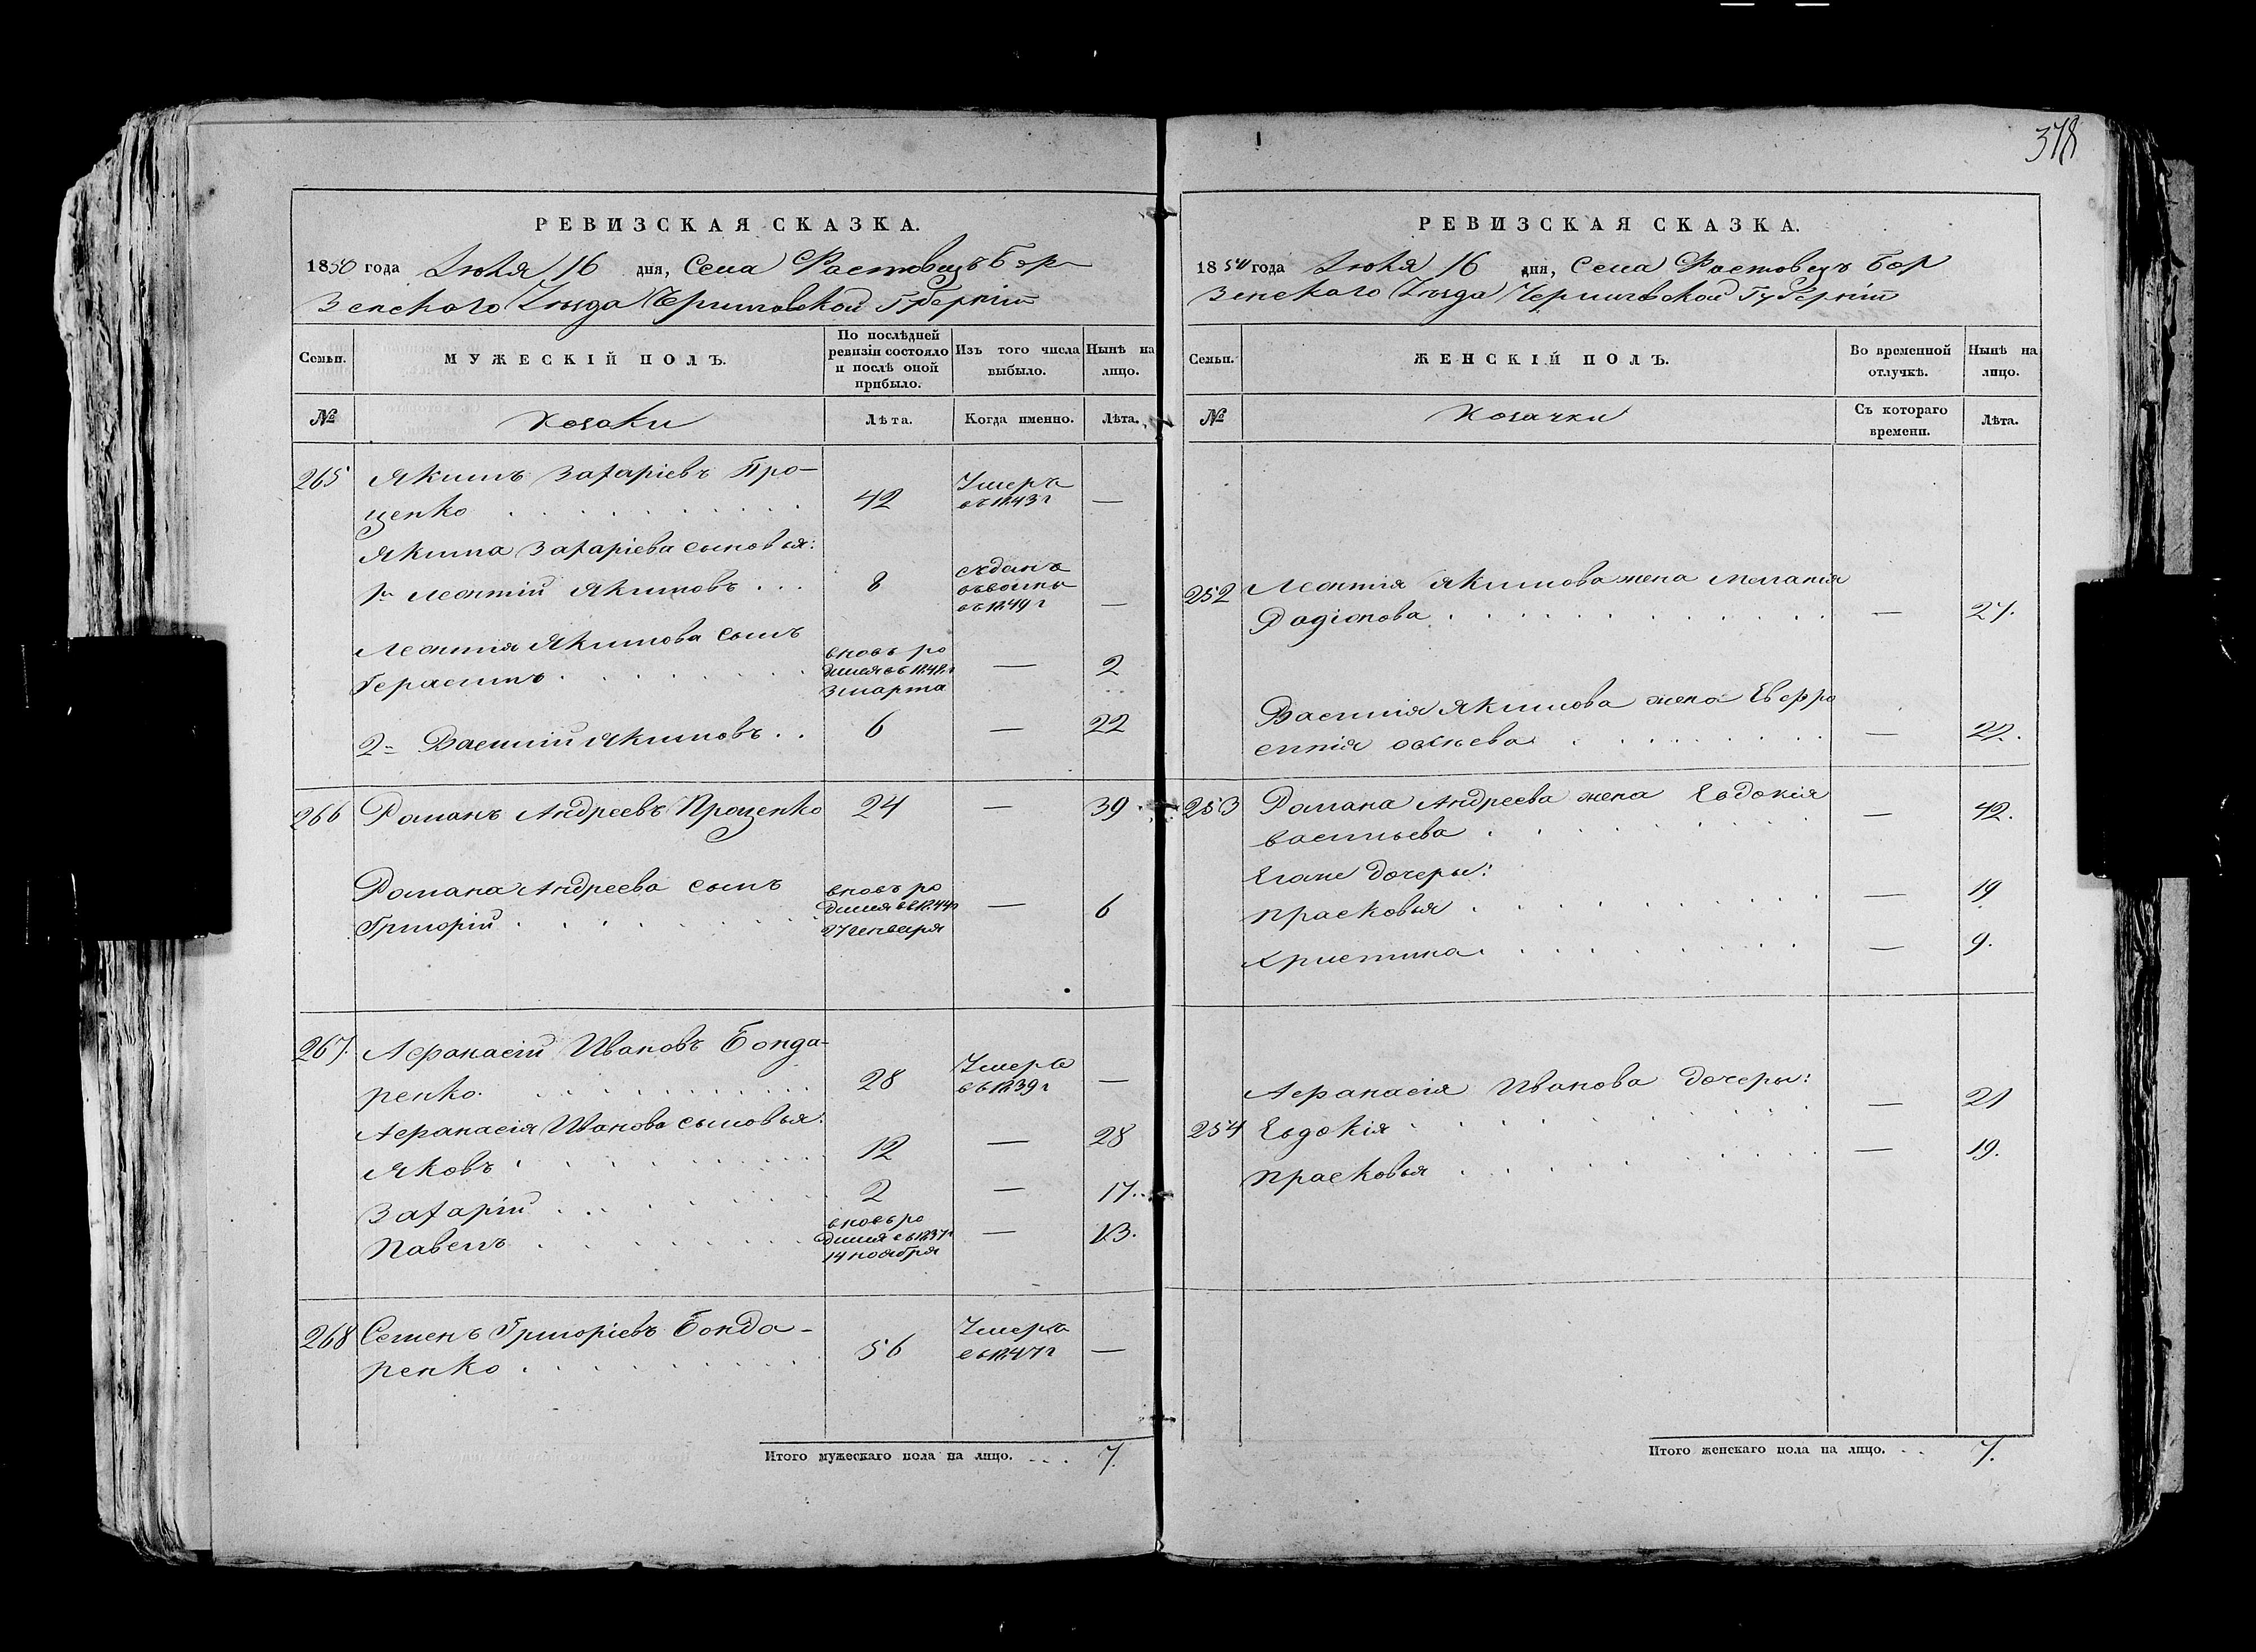 378
РЕВИЗСКАЯ СКАЗКА.
1850 года Іюля 16 дня, Села Растовецъ Бор
зенскаго Уѣзда Черниговской Губерніи
Семьи.
МУЖЕСКІЙ ПОЛЪ.
По послѣдней
ревизіи состояло
и послѣ оной
прибыло.
Изъ того числа
выбыло.
Нынѣ на
лицо.
№
Козаки
Лѣта.
Когда именно.
Лѣта.
265 Якимъ Захаріевъ Про-
ценко 42 Умеръ въ 1843 г —
Якима Захаріева сыновья:
1й Леонтій Якимовъ 8 въ 1849 г —
Леонтія Якимова сынъ
Герасимъ вновь ро
дился въ 1848 г
3 марта — 2
2й Василій Якимовъ 6 — 22
266 Романъ Андреевъ Проценко 24 — 39
Романа Андреева сынъ
Григорій вновь ро
дился въ 1844 г
27 генваря — 6
267. Афанасій Ивановъ Бонда-
ренко. 28 Умеръ въ 1839 г —
Афанасія Иванова сыновья:
Яковъ 12 — 28
Захарій 2 — 17.
Павелъ вновь ро
дился въ 1837 г
14 ноября — 13.
268 Семенъ Григоріевъ Бонда-
ренко 56 Умеръ въ 1847 г —
Итого мужескаго пола на лицо. 7.
РЕВИЗСКАЯ СКАЗКА.
1850 года Іюля 16 дня, Села Растовецъ Бор
зенскаго Уѣзда Черниговской Губерніи
Семьи.
ЖЕНСКІЙ ПОЛЪ.
Во временной
отлучкѣ.
Нынѣ на
лицо.
№
Козачки
Съ котораго
времени.
Лѣта.
252 Леонтія Якимова жена Меланія
Родіонова — 27.
Василія Якимова жена Евфро
синія — 22.
253 Романа Андреева жена Евдокія
Васильева — 42.
Его же дочеры:
Прасковья — 19
Христина — 9.
Афанасія Иванова дочеры:
254 Евдокія — 21
Прасковья — 19.
Итого женскаго пола на лицо. 7.